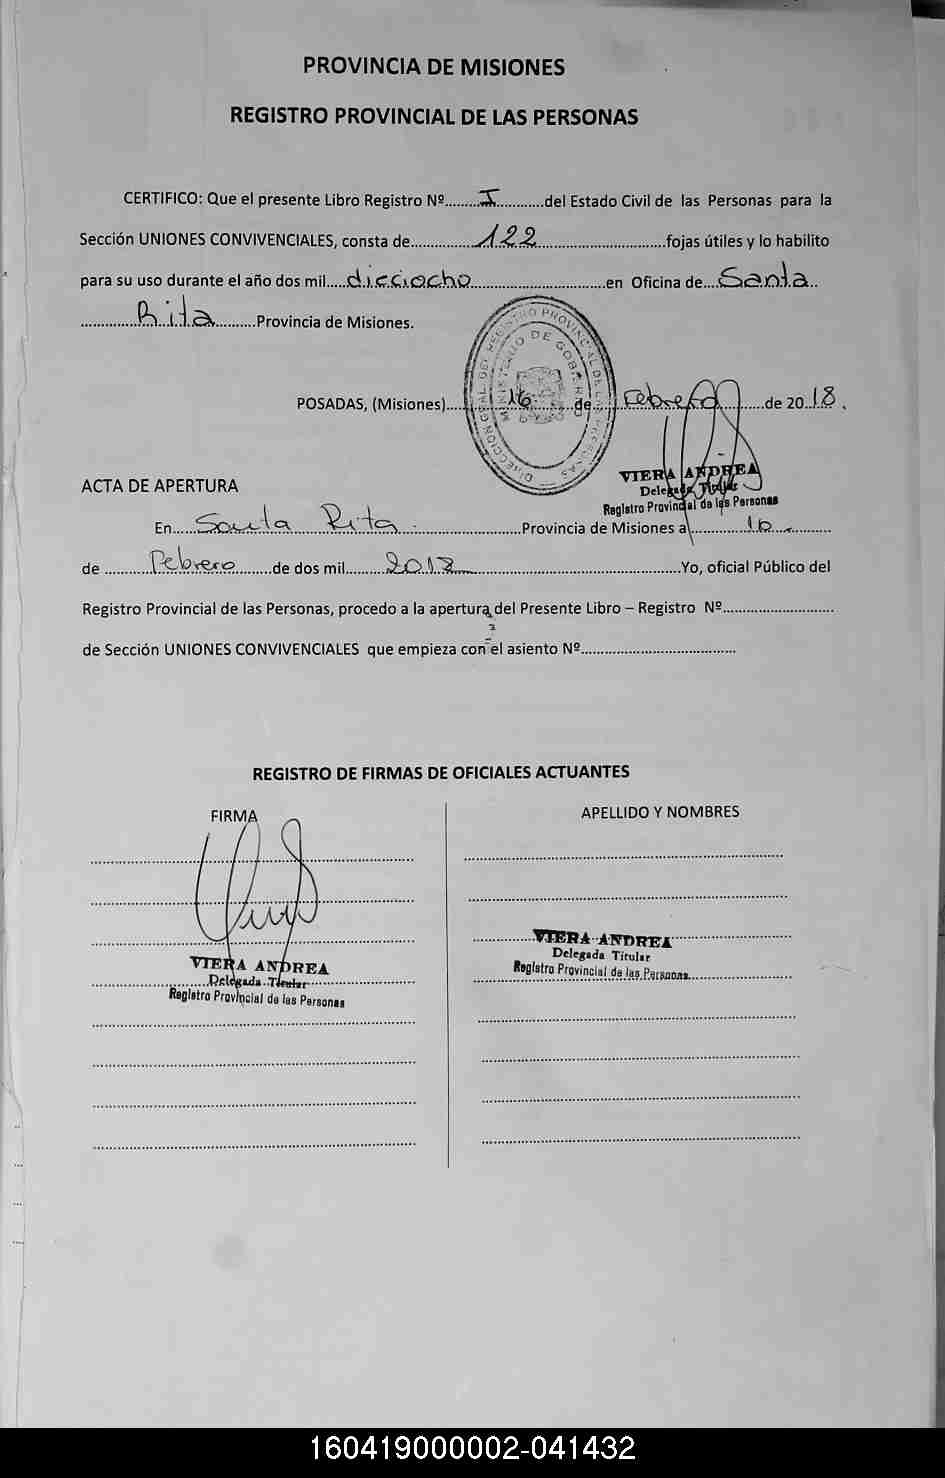 PROVINCIA DE MISIONES
REGISTRO PROVINCIAL DE LAS PERSONAS
CERTIFICO: Que el presente Libro Registro Nº.........I............del Estado Civil de las Personas para la
Sección UNIONES CONVIVENCIALES, consta de................122................................fojas útiles y lo habilito
para su uso durante el año dos mil.....dicciocho..................................en Oficina de....Santa..
...............Rita...........Provincia de Misiones.
DIRECCION GRAL. DEL REGISTRO PROVINCIAL DE LAS PERSONAS
MINISTERIO DE GOBIERNO
POSADAS, (Misiones)..........16..........de........Febrero........de 2018.
VIERA ANDREA
Delegada Titular
Registro Provincial de las Personas
ACTA DE APERTURA
En......Santa Rita..............................Provincia de Misiones a..............16..........
de ...........Febrero.........de dos mil..........2018.....................................................Yo, oficial Público del
Registro Provincial de las Personas, procedo a la apertura del Presente Libro – Registro Nº............................
de Sección UNIONES CONVIVENCIALES que empieza con el asiento Nº.......................................
REGISTRO DE FIRMAS DE OFICIALES ACTUANTES
FIRMA
APELLIDO Y NOMBRES
VIERA ANDREA
Delegada Titular
Registro Provincial de las Personas
VIERA ANDREA
Delegada Titular
Registro Provincial de las Personas
160419000002-041432